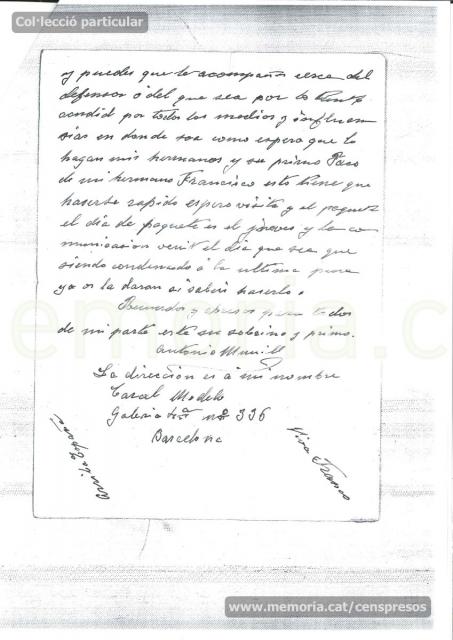 Col·lecció particular
y puedes que te acompañe cerca del
defensor ó del que sea por lo tanto
por todos los medios y influen
sias en donde sea como espero que lo
hagan mis hermanos y su primo Paco
de mi hermano Francisco esto tiene que
hacerse rapido espero visita y el paquete
el dia de paquete es el jueves y la co
municasion venir el dia que sea que
siendo condenado á la ultima pena
ya os la daran si sabeis hacerlo.
Recuerdos y para todos
de mi parte este su sobrino y primo.
Antonio
La direccion es á mi nombre
Carcel Modelo
Galeria 4ª nº 336
Barcelona
Arriba España
Viva Franco
www.memoria.cat/censpresos